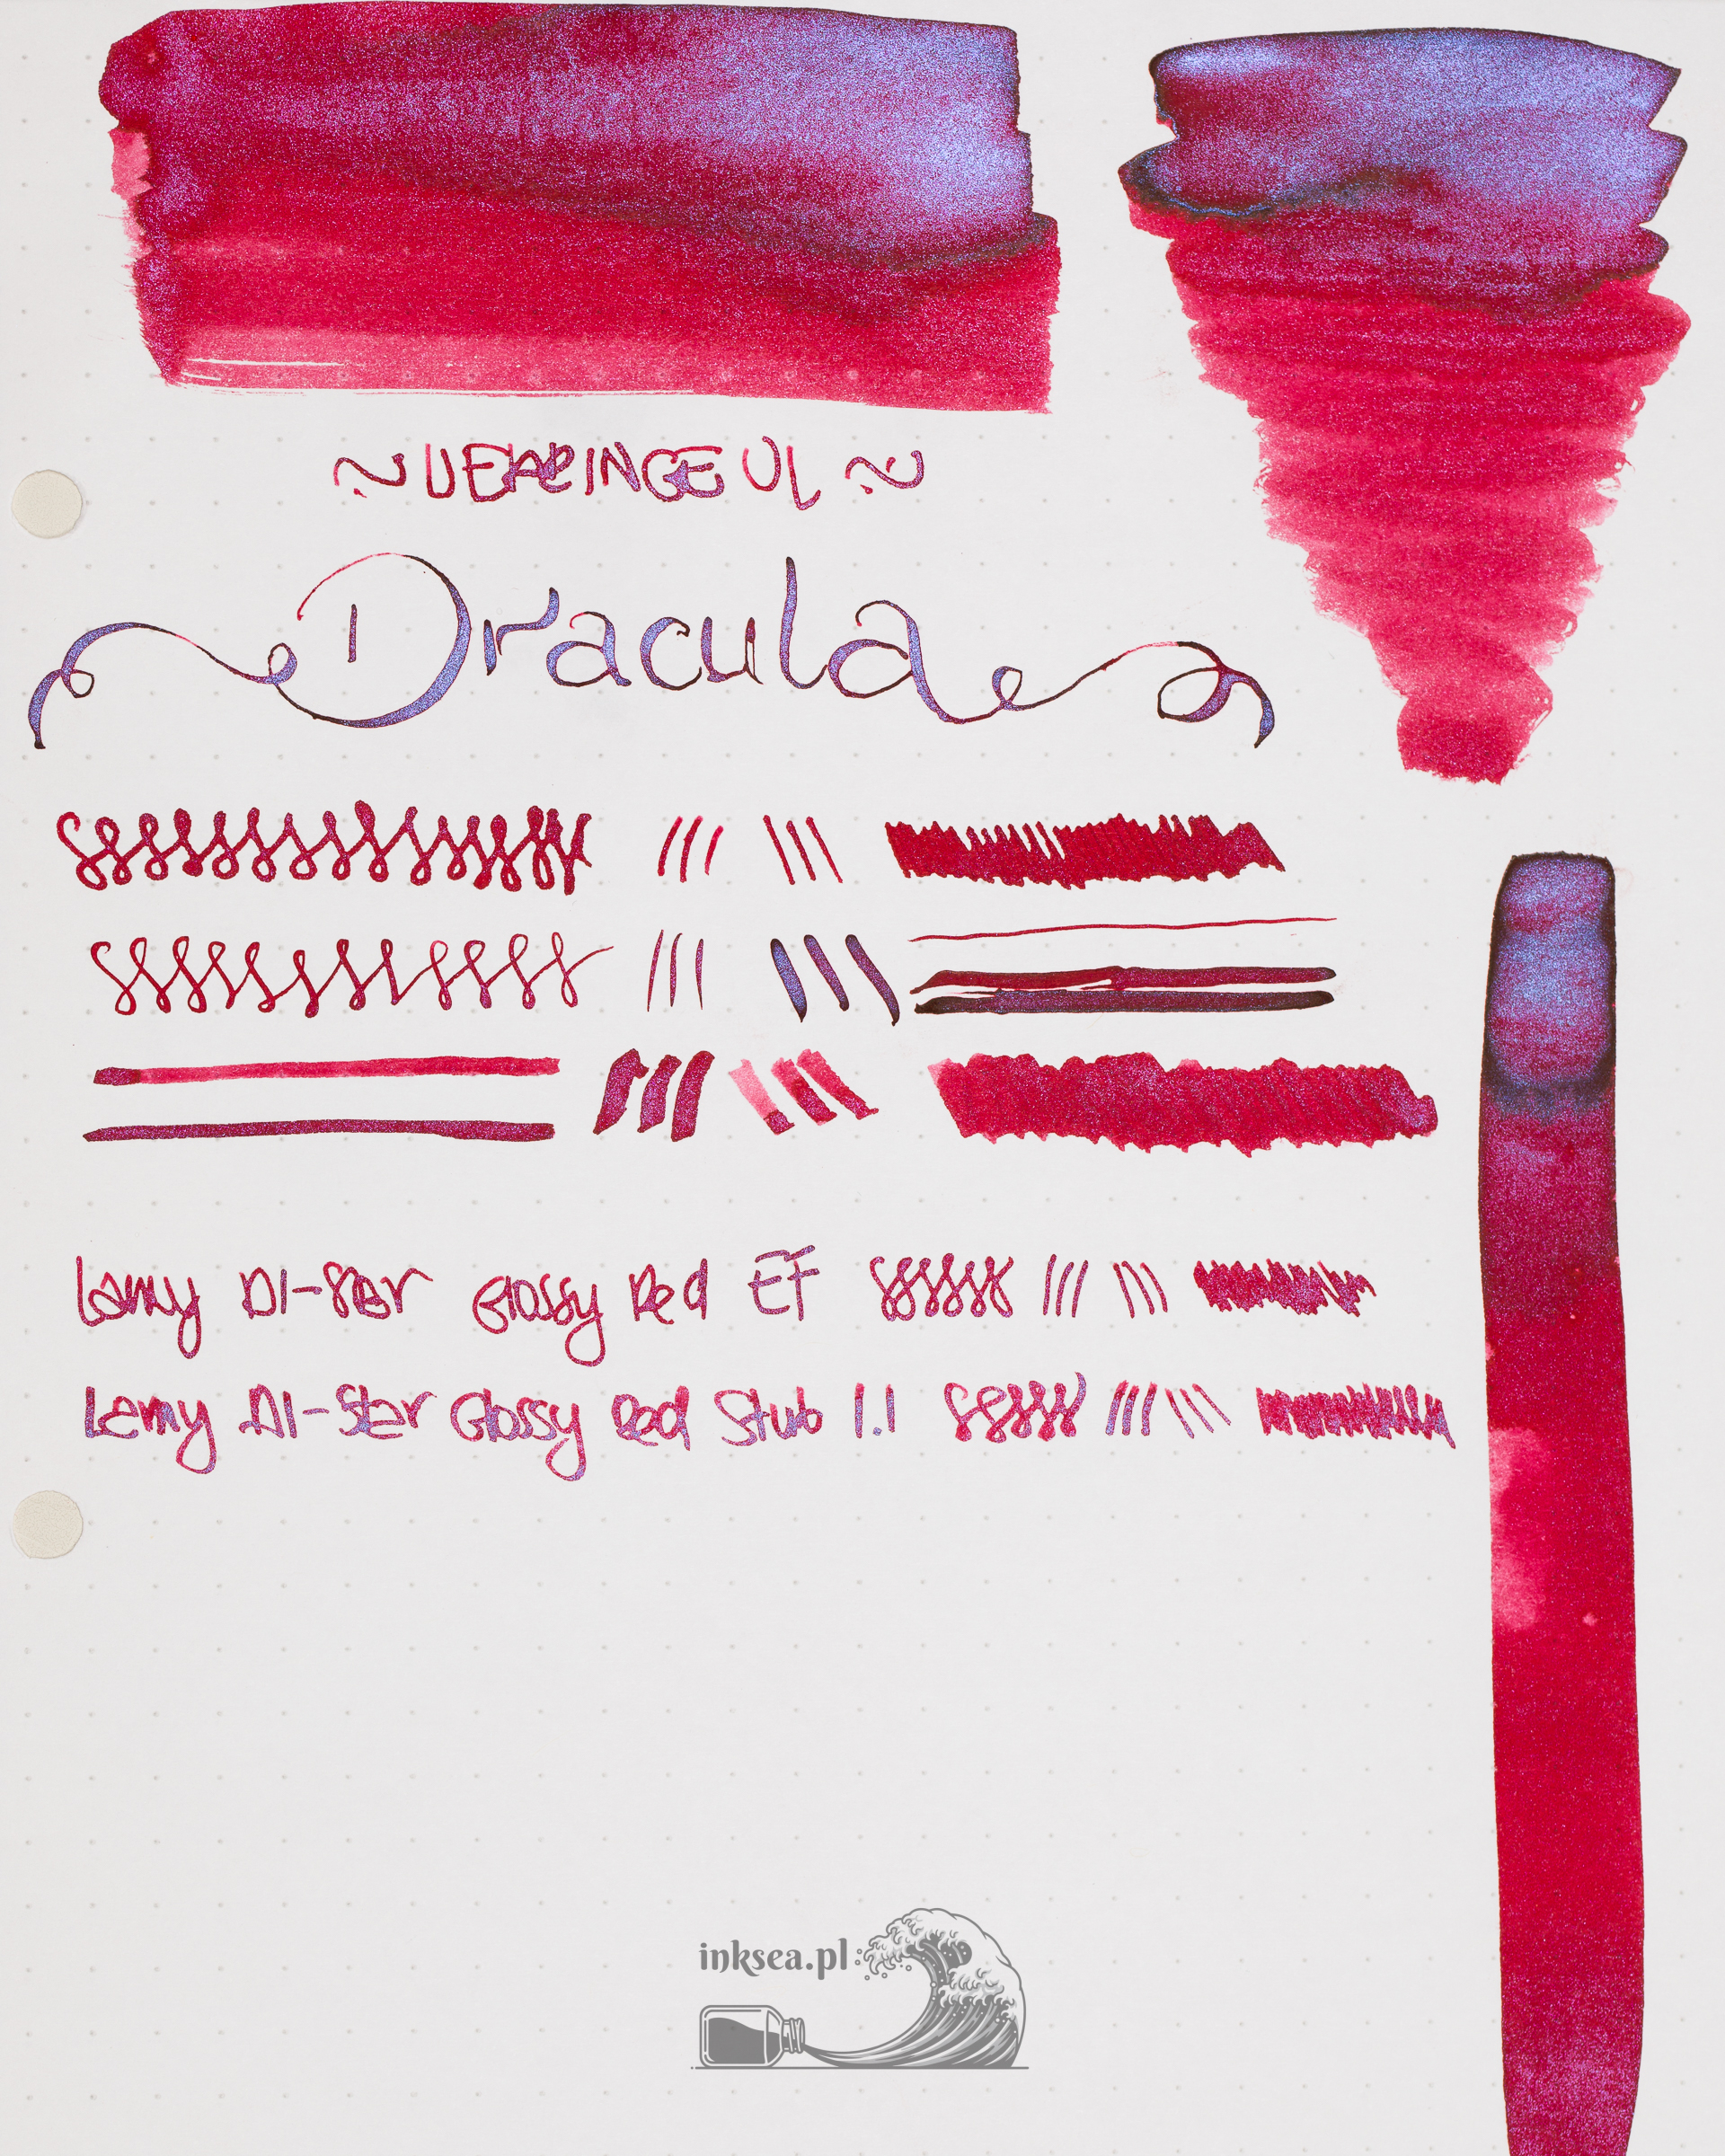 ~ WEARINGEUL ~
Dracula
Lamy Al-Star Glossy Red EF
Lamy Al-Star Glossy Red Stub 1.1
inksea.pl